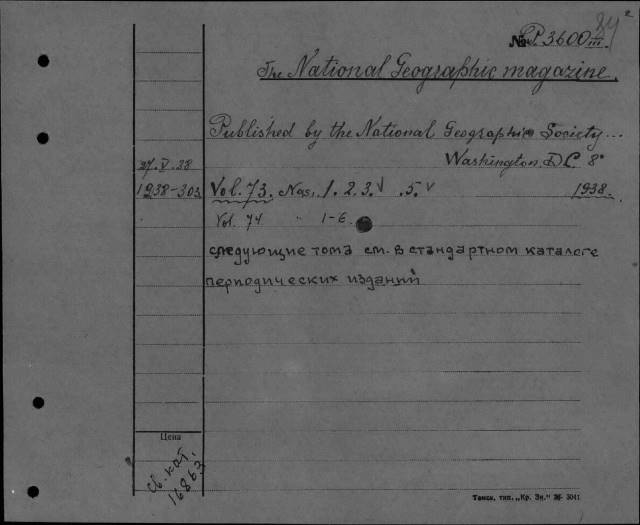 84²
№ P.3600 III.
The National Geographic magazine.
Published by the National Geographic Society...
Washington, D.C. 8°
27.V.38
1938-303 Vol. 73. Nos, 1. 2. 3.V .5.V 1938.
Vol. 74 " 1-6.
следующие тома см. в стандартном каталоге
периодических изданий
Цена
св. кат.
16863.
Томск, тип. „Кр. Зн.“ 3041